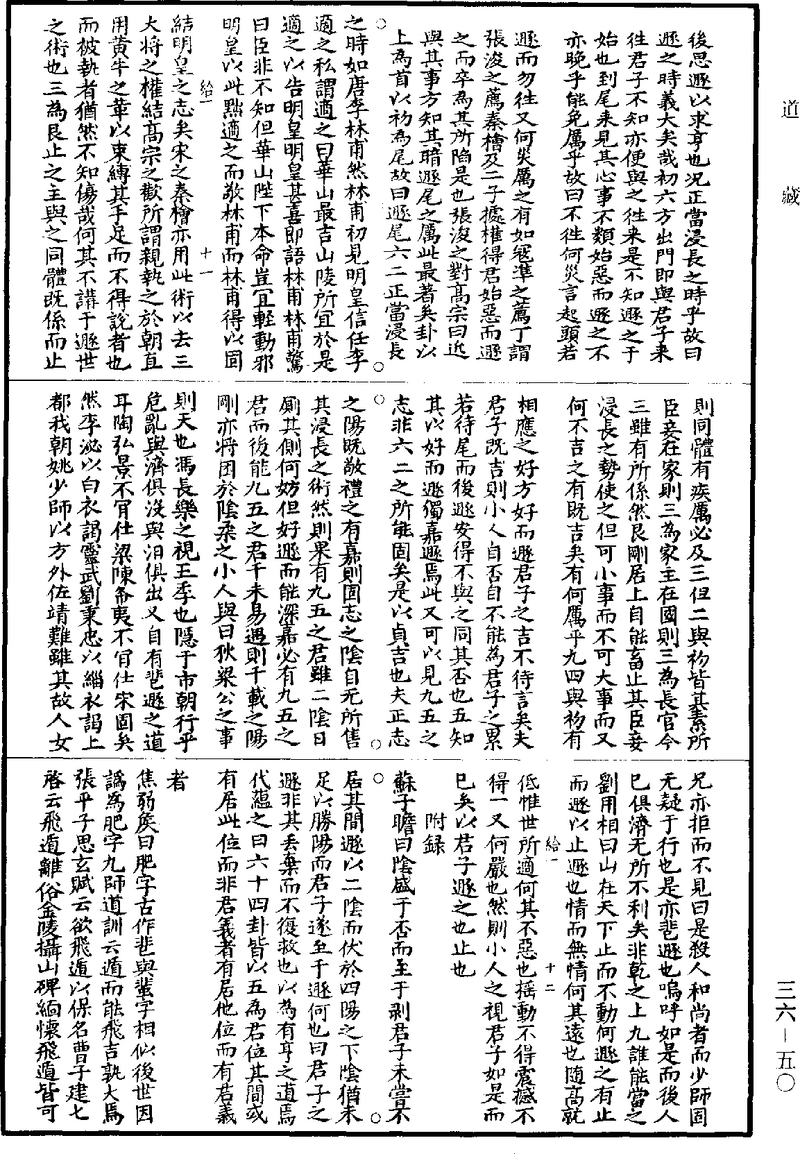 道藏
後思遯以求亨也况正當浸長之時乎故曰
遯之時義大矣哉初六方出門即與君子来
徃君子不知亦便與之徃来是不知遯之于
始也到尾来見其心事不類始惡而遯之不
亦晚乎能免厲乎故曰不徃何災言起頭若
遯而勿徃又何災厲之有如寇準之薦丁謂
張浚之薦秦檜及二子處權得君始惡而遯
之而卒為其所陷是也張浚之對髙宗曰近
與其事方知其暗遯尾之厲此最著矣卦以
上為首以初為尾故曰遯尾六二正當浸長
之時如唐李林甫然林甫初見明皇信任李
適之私謂適之曰華山最吉山陵所宜於是
適之以告明皇明皇甚喜即語林甫林甫驚
曰臣非不知但華山陛下本命豈宜輕動邪
明皇以此點適之而敬林甫而林甫得以固
給一 十一
結明皇之志矣宋之秦檜亦用此術以去三
大將之權結髙宗之歡所謂親執之於朝直
用黃牛之革以束縛其手足而不得說者也
而被執者猶然不知傷哉何其不講于遯世
之術也三為艮止之主與之同體既係而止
則同體有疾厲必及三但二與初皆其素所
臣妾在家則三為家主在國則三為長官今
三雖有所係然艮剛居上自能畜止其臣妾
浸長之勢使之但可小事而不可大事而又
何不吉之有既吉矣有何厲乎九四與初有
相應之好方好而遯君子之吉不待言矣夫
君子既吉則小人自否自不能為君子之累
若待尾而後遯安得不與之同其否也五知
其以好而遯獨嘉遯焉此又可以見九五之
志非六二之所能固矣是以貞吉也夫正志
之陽既敬禮之有嘉則固志之陰自无所售
其浸長之術然則果有九五之君雖二陰日
厠其側何妨但好遯而能深嘉必有九五之
君而後能九五之君千未易遇則千載之陽
剛亦將困於陰柔之小人與曰狄梁公之事
則天也馮長樂之視五季也隱于市朝行乎
危亂與濟俱沒與汨俱出又自有肥遯之道
耳陶弘景不肎仕梁陳希夷不肎仕宋固矣
然李泌以白衣謁靈武劉秉忠以緇衣謁上
都我朝姚少師以方外佐靖難雖其故人女
兄亦拒而不見曰是殺人和尚者而少師固
无疑于行也是亦肥遯也嗚呼如是而後人
已俱濟无所不利矣非乾之上九誰能當之
劉用相曰山在天下止而不動何遯之有止
而遯以止遯也情而無情何其遠也随髙就
給一 十二
低惟世所適何其不惡也摇動不得震撼不
得一又何嚴也然則小人之視君子如是而
已矣以君子遯之也止也
附録
蘇子瞻曰陰盛于否而至于剥君子未嘗不
居其間遯以二陰而伏於四陽之下陰猶未
足以勝陽而君子遂至于遯何也曰君子之
遯非其丢棄而不復救也以為有亨之道焉
代藴之曰六十四卦皆以五為君位其間或
有居此位而非君義者有居他位而有君義
者
焦弱矦曰肥字古作𦐐與蜚字相似後世因
譌為肥字九師道訓云遁而能飛吉孰大焉
張平子思玄賦云欲飛遁以保名曹子建七
啓云飛遁離俗金陵攝山碑緬懷飛遁皆可
三六－五〇